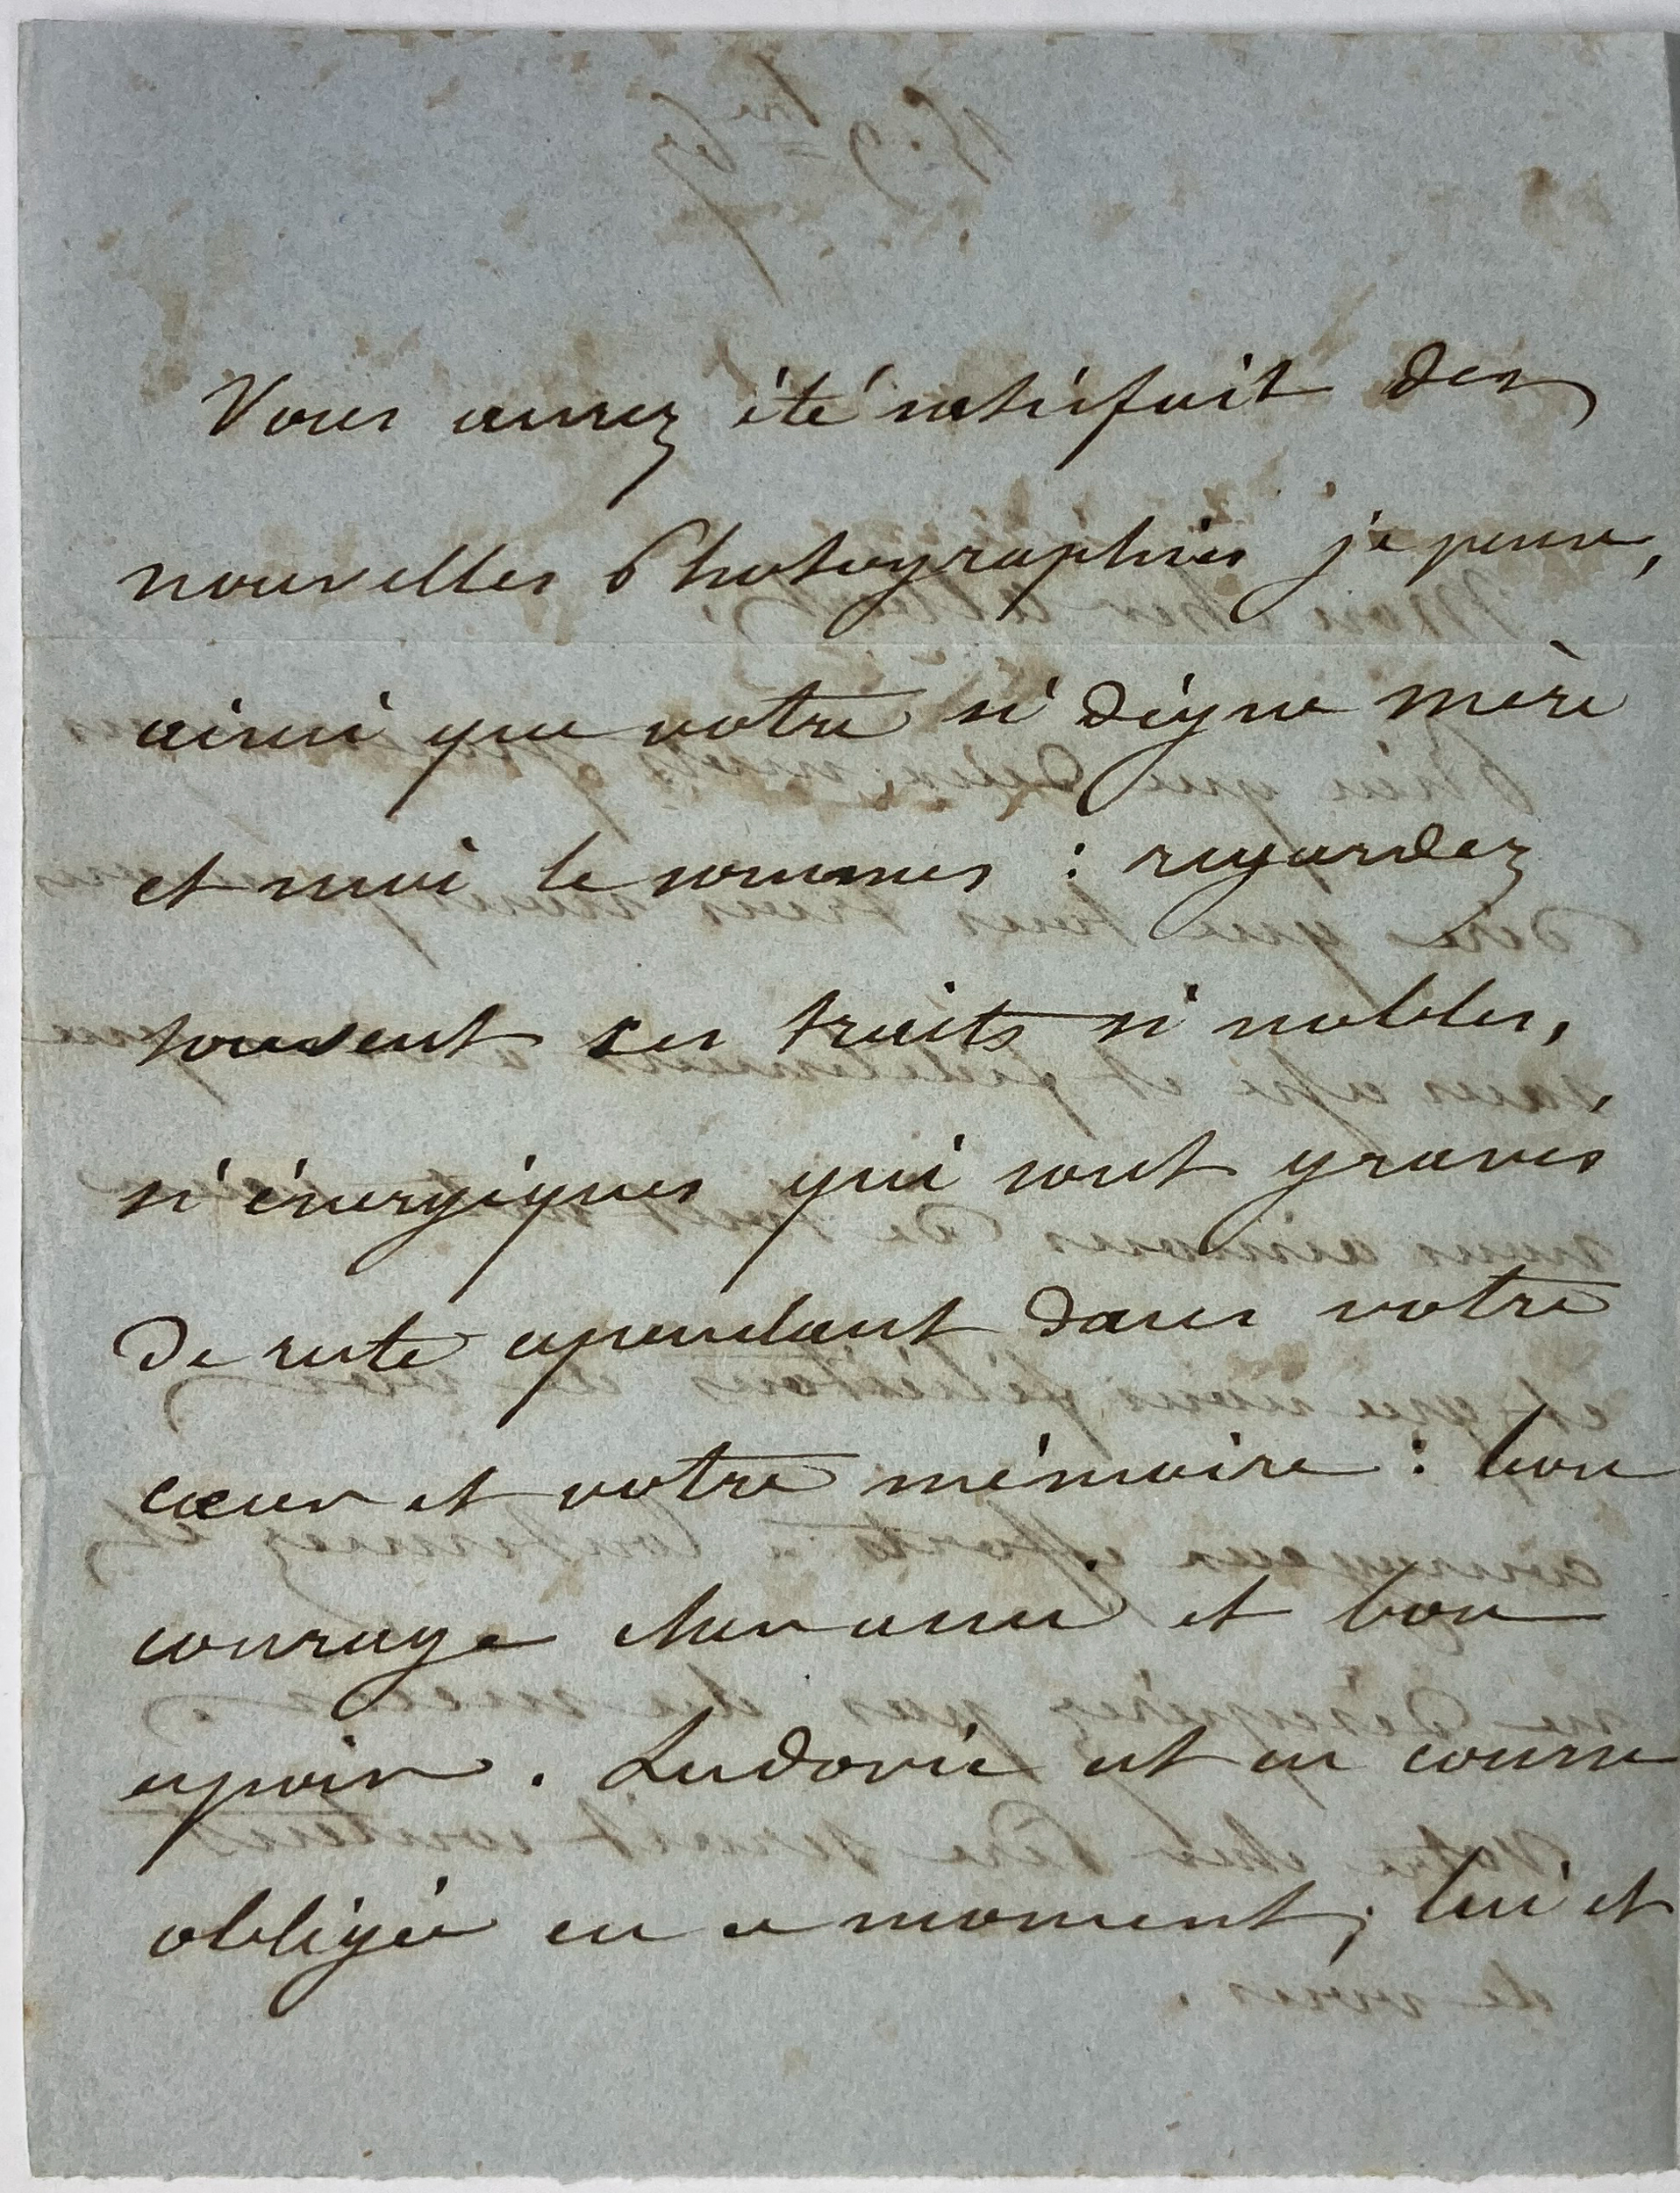 Vous aurez été satisfait des
nouvelles Photographies je pense,
ainsi que votre si digne mère
et moi le sommes : regardez
souvent ces traits si nobles,
si énergiques qui sont gravés
de reste cependant dans votre
cœur et votre mémoire : bon
courage cher ami et bon
espoir. Ludovic est en course
obligée en ce moment; lui et